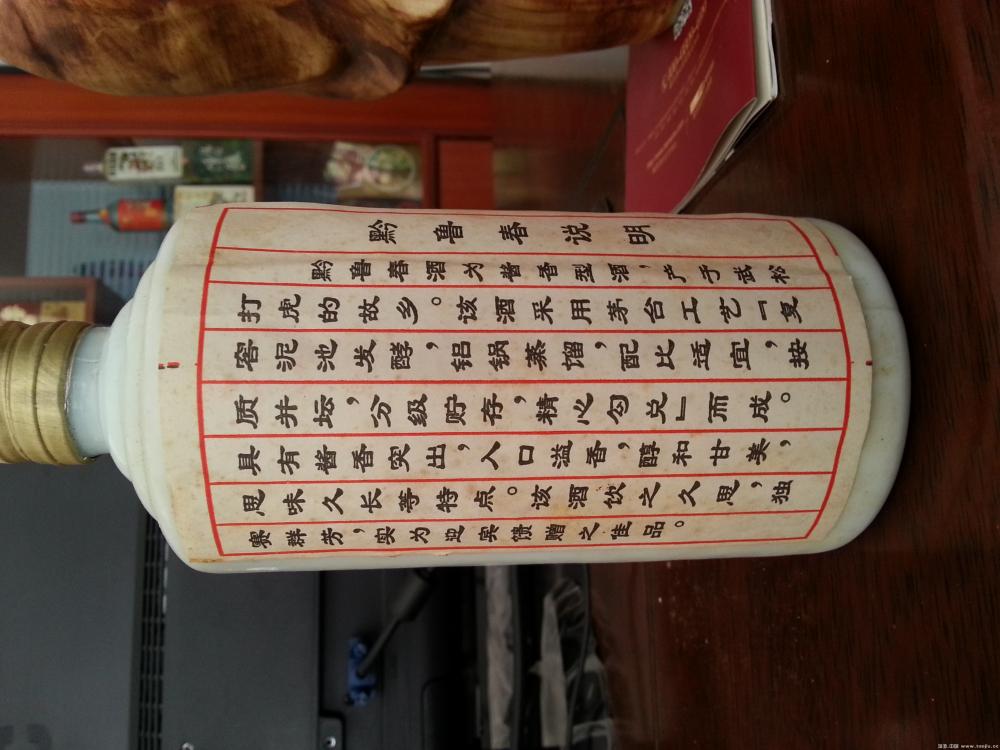 黔鲁春说明
黔鲁春酒为酱香型酒，产于武松
打虎的故乡。该酒采用茅台工艺『复
窖泥池发酵，铝锅蒸馏，配比适宜，按
质并坛，分级贮存，精心勾兑』而成。
具有酱香突出，入口溢香，醇和甘美，
思味久长等特点。该酒饮之久思，独
赛群芳，实为迎宾馈赠之佳品。